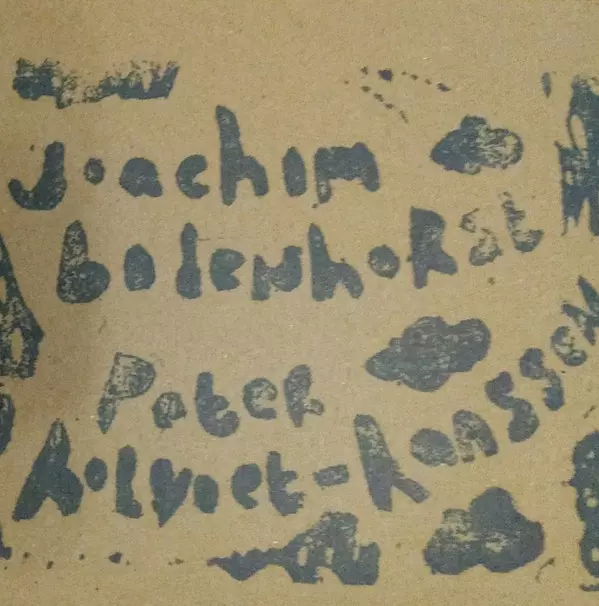 Joachim
bolenhoRst
Peter
holvoet-hanssen